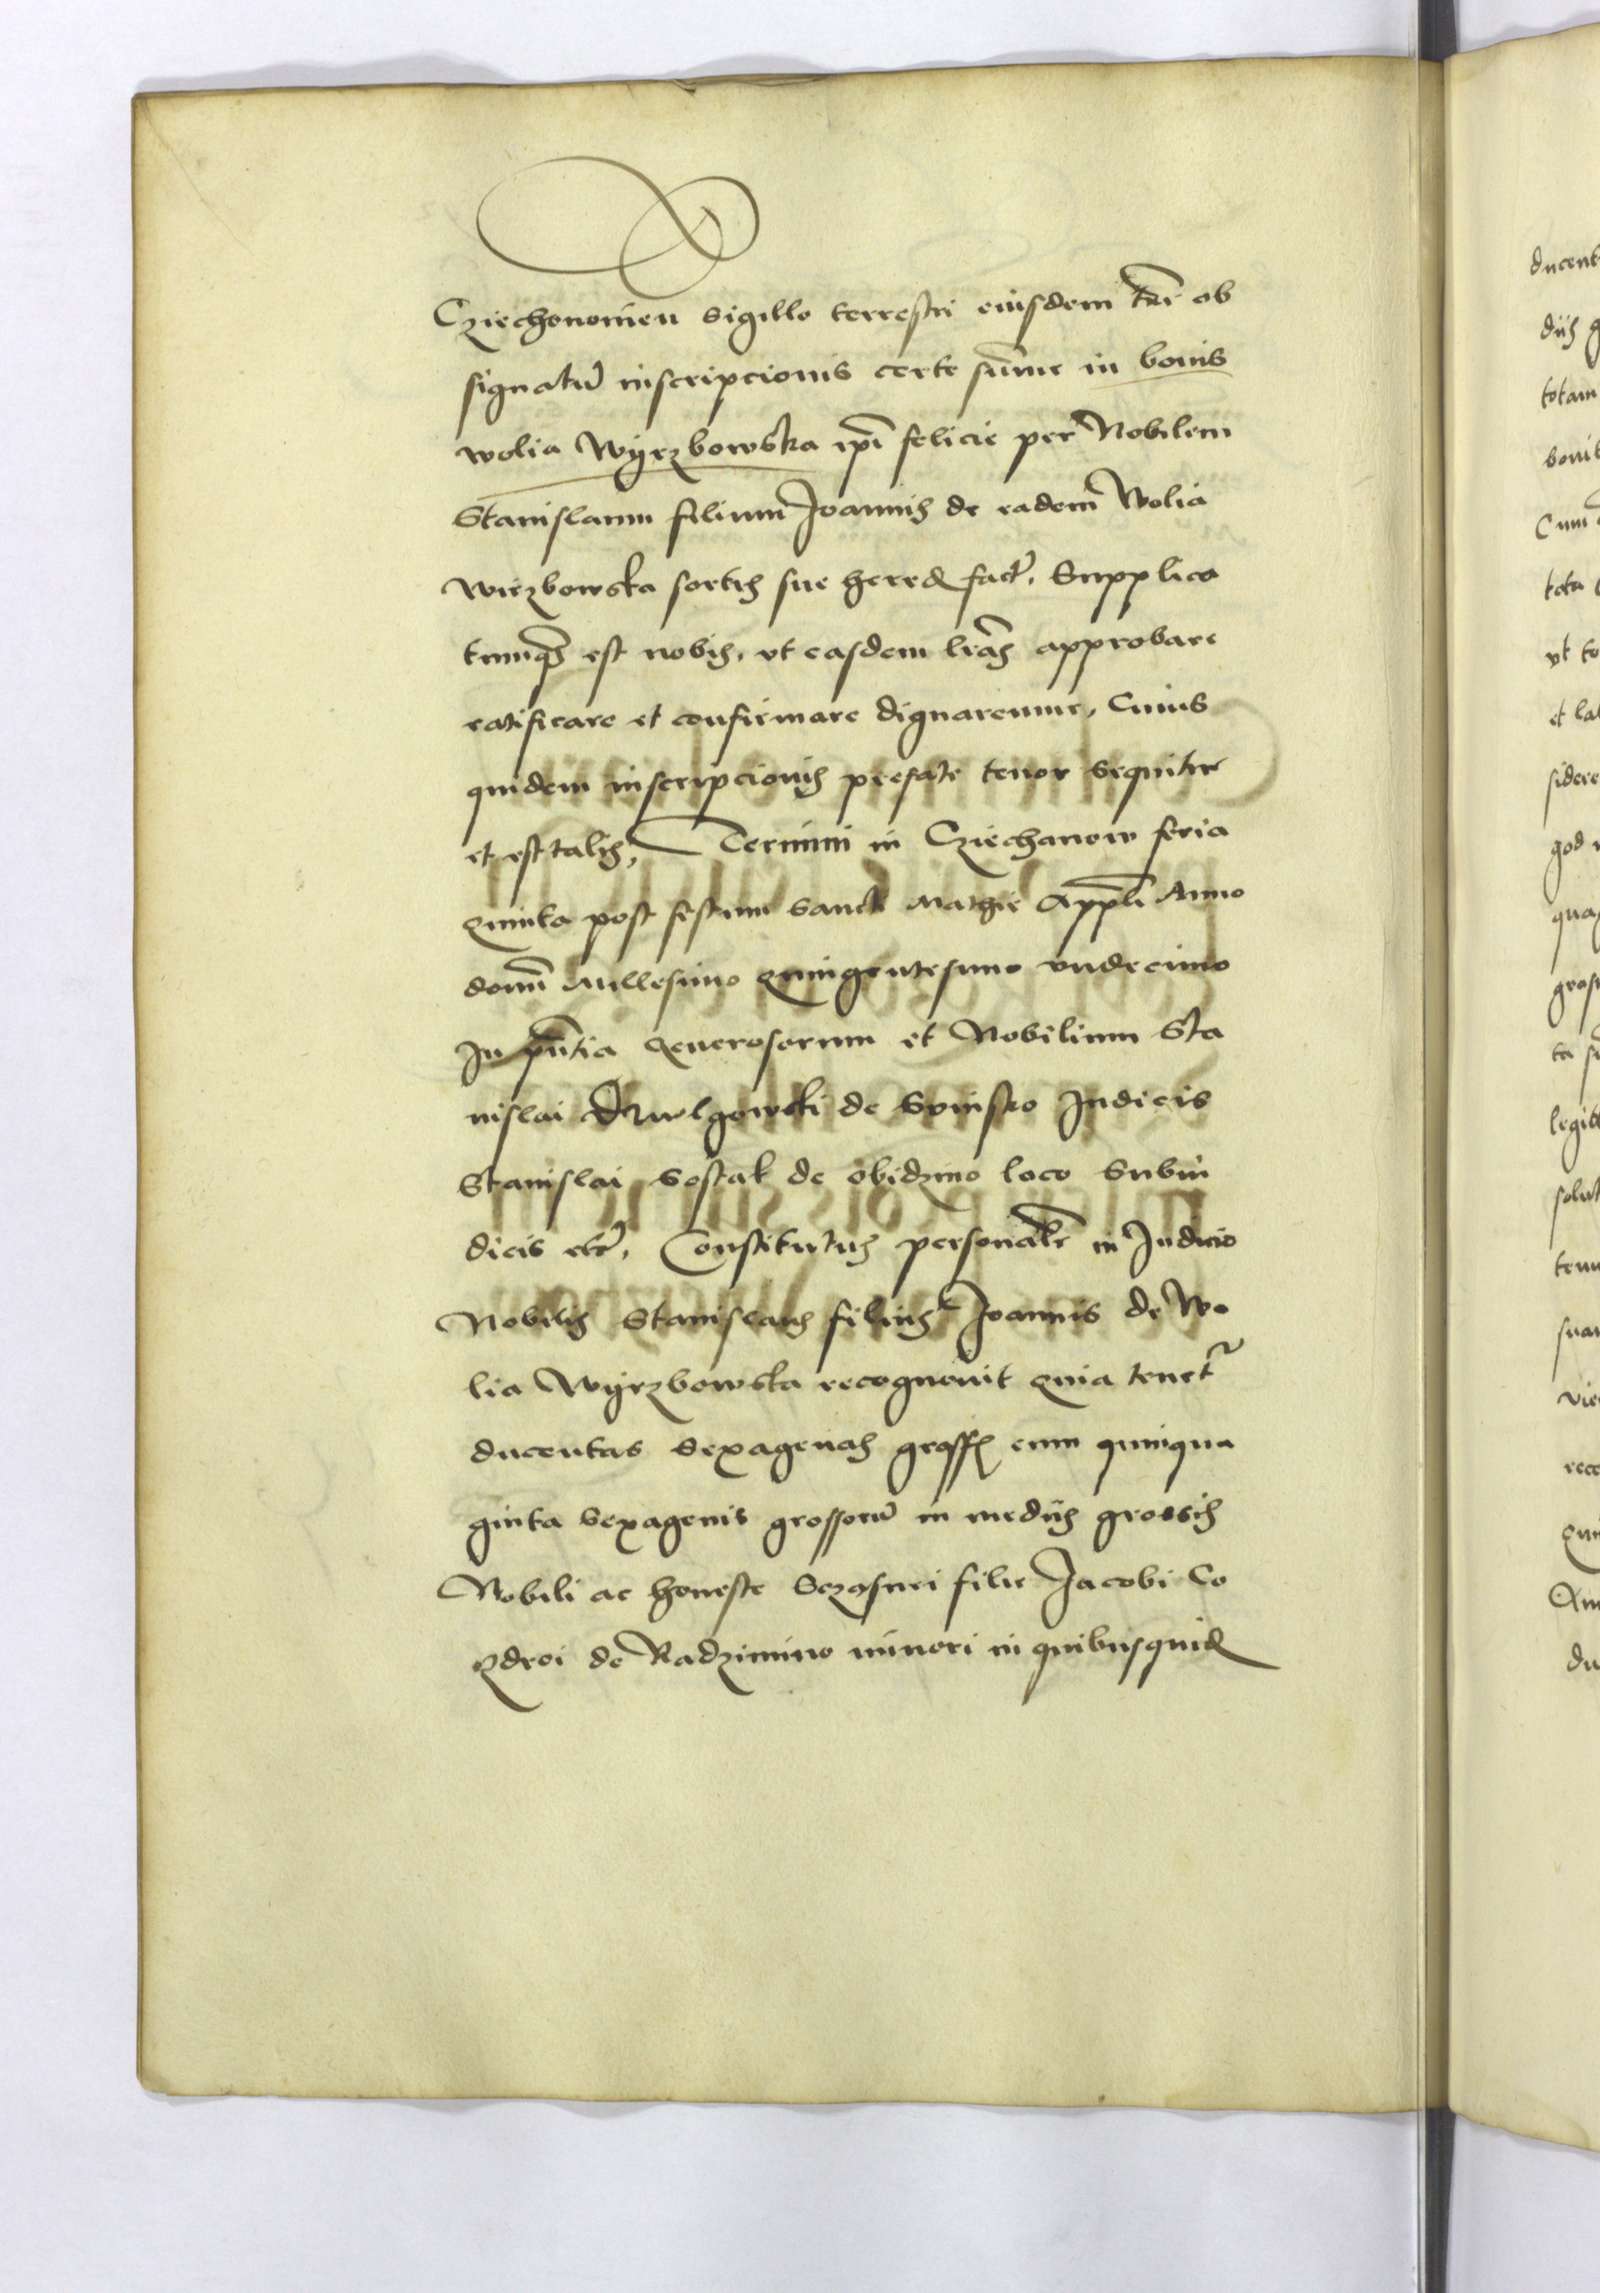 Cziechonomien sigillo terrestri eiusdem terre ob
signatu inscripcionis certe sume in bonis
wolia Wyrzbowska ipi felicie per Nobilem
Stanislaum filium Joannis de eadem Wolia
Wirzbowska sortis sue hered fact, Supplica
tumqs est nobis, vt easdem lras approbare
ratificare et confirmare dignaremur, Cuius
quidem inscripcionis prefate tenor sequitur
et est talis, Termini in Cziechanow feria
quinta post festum sancti Mathie Appli Anno
domi Millesimo quingentesimo vndecimo
In pntia generosorum et Nobilium Sta
nislai de Iudicis
Stanislai Sostak de obidzino loco Subiu
dicis etc, Constitutus personalr in Iudicio
Nobilis Stanislaus filius Joannis de Wo
lia Wyrzbowska recognovit quia tenet
ducentas sexagenas gross cum quinqua
ginta sexagenis grossoru in mediis grossis
Nobili ac honeste filie Jacobi Co
de Radzimino minori in quibusquid
ducent
totam
Cum
tota
vt to
et la
sidere
god
qua
gross
legit
solut
tenu
suar
vie
rece
Qui
du